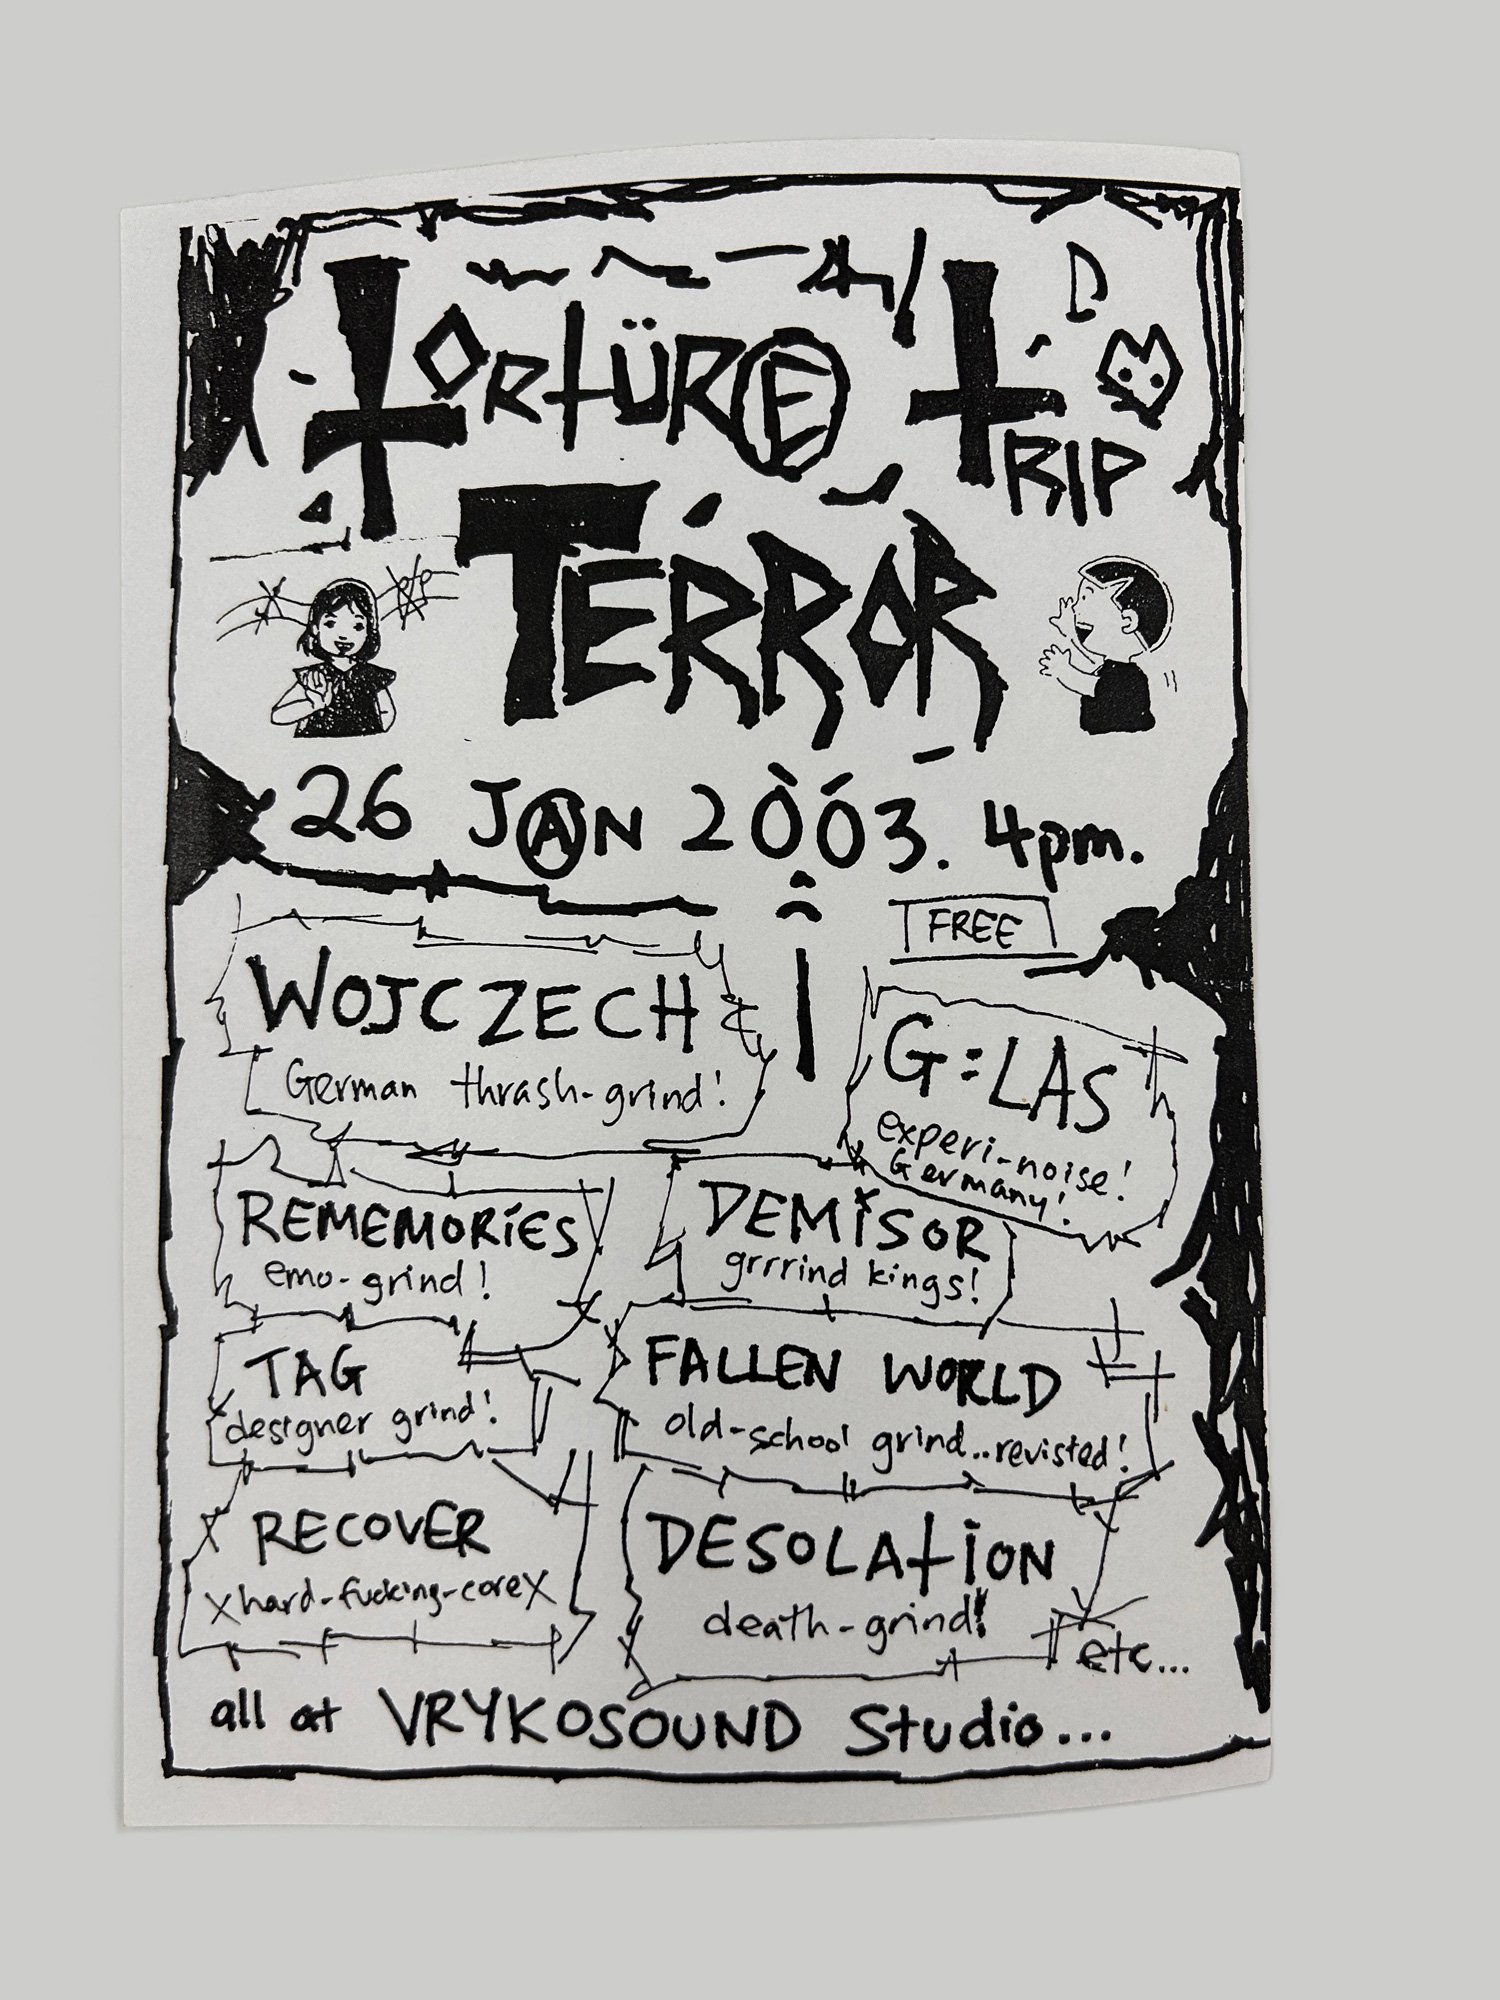 TORTÜRE TRIP
TERROR
26 JAN 2003. 4pm.
FREE
WOJCZECH
German thrash-grind!
G:LAS
experi-noise!
Germany!
REMEMORIES
emo-grind!
DEMISOR
grrrind kings!
TAG
designer grind!
FALLEN WORLD
old-school grind..revisted!
RECOVER
xhard-fucking-corex
DESOLATION
death-grind!
etc...
all at VRYKOSOUND Studio...